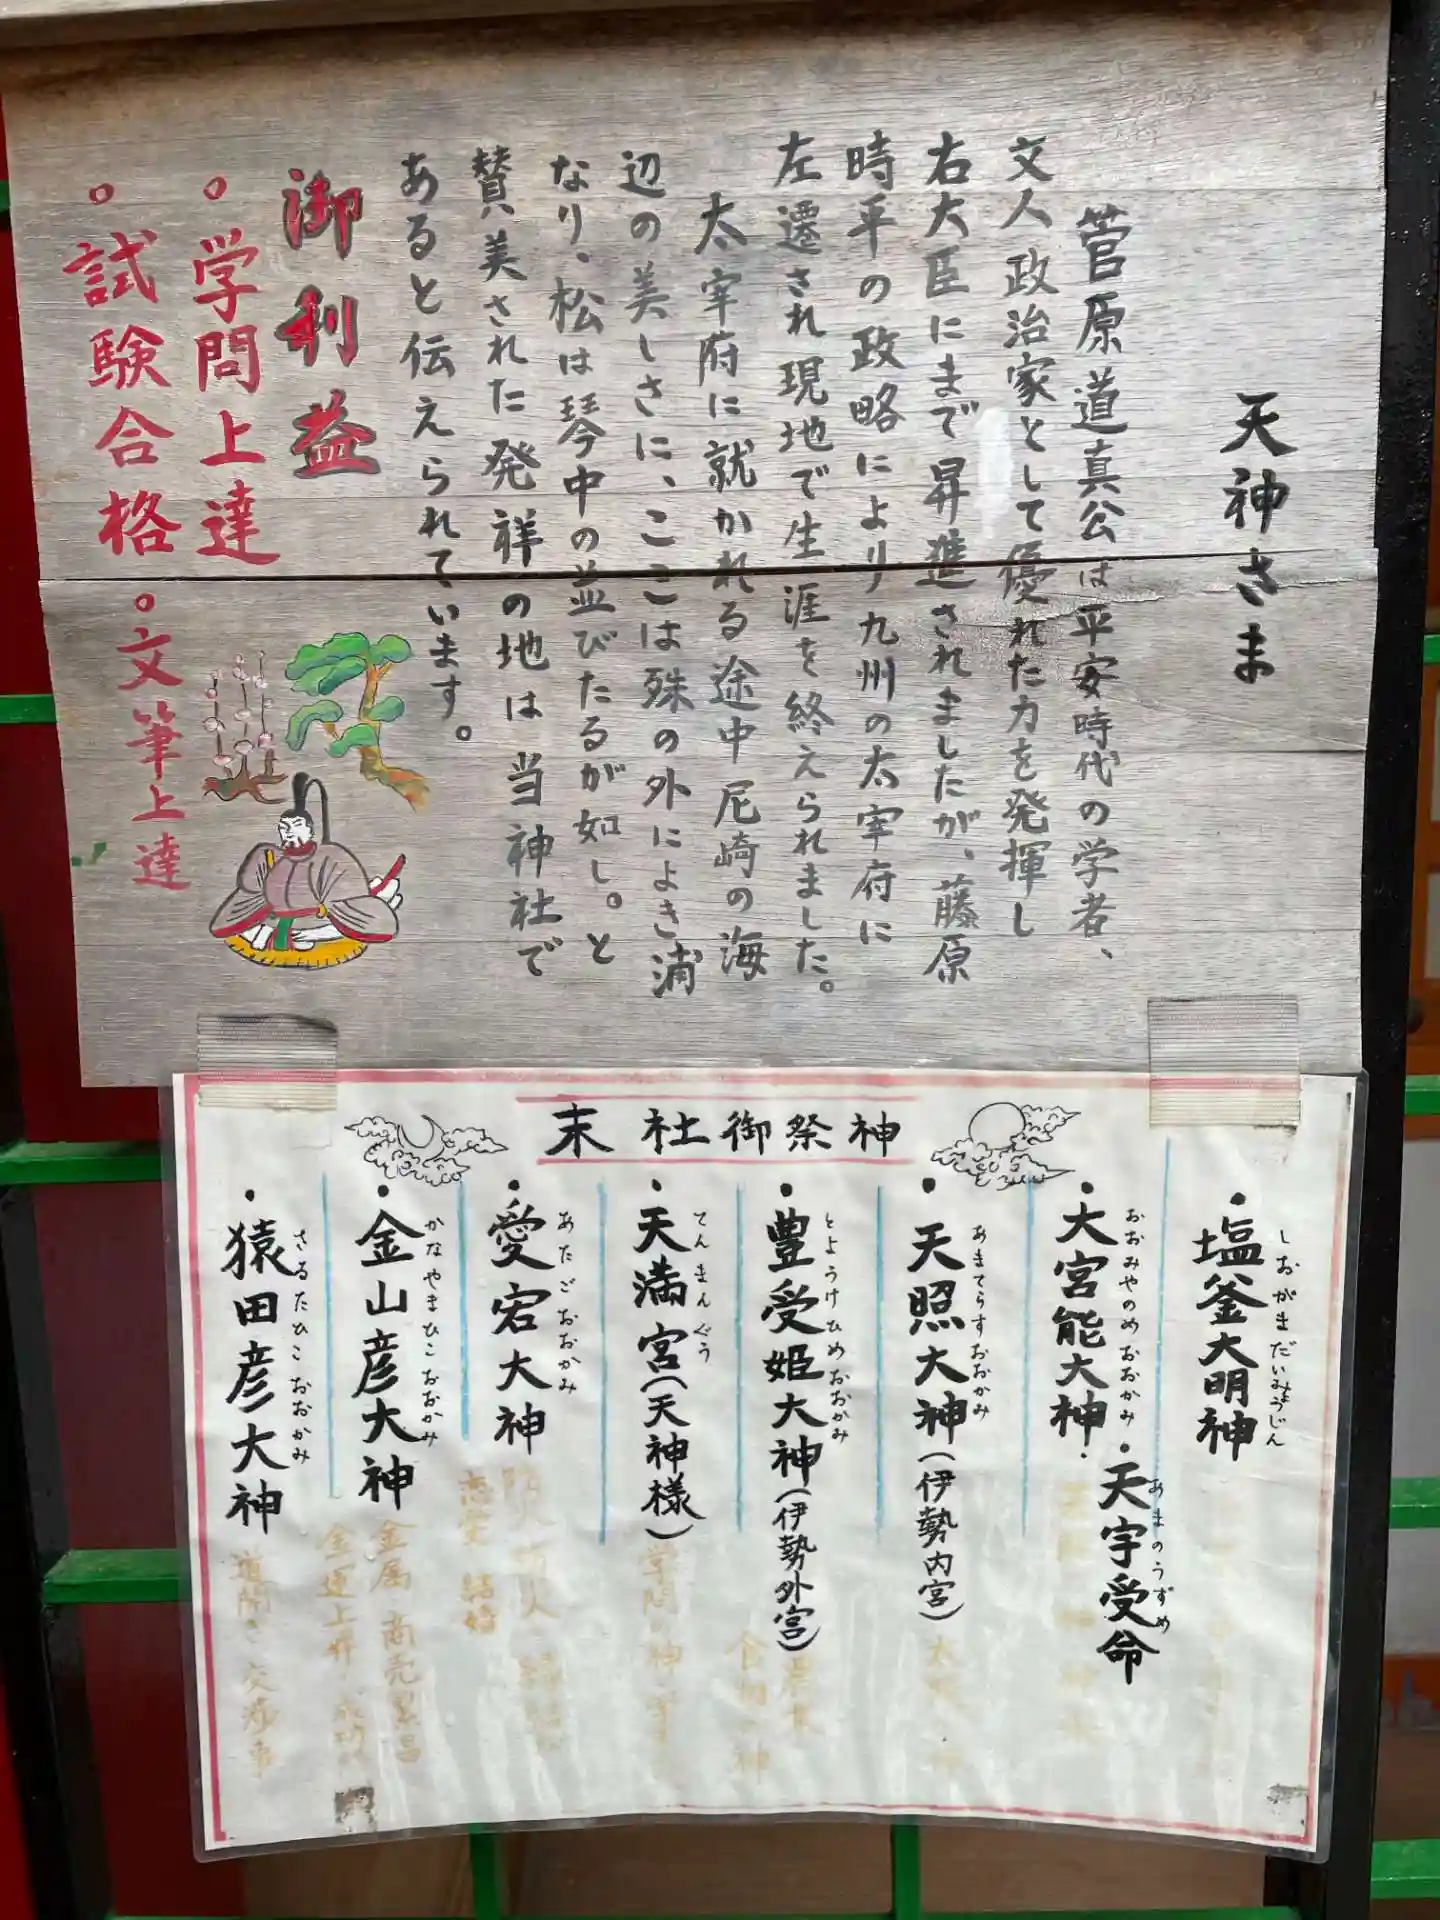 天神さま
菅原道真公は平安時代の学者、
文人政治家として優れた力を発揮し
右大臣にまで昇進されましたが、藤原
時平の政略により九州の太宰府に
左遷され現地で生涯を終えられました。
太宰府に就かれる途中尼崎の海
辺の美しさに、ここは殊の外によき浦
なり・松は琴中の並びたるが如し。と
賛美された発祥の地は当神社で
あると伝えられています。
御利益
。学問上達
。試験合格。文筆上達
末社御祭神
・塩釜大明神
しおがまだいみょうじん
・大宮能大神・
おおみやのめおおかみ
・天宇受命
あまのうずめ
・天照大神(伊勢内宮)
あまてらすおおかみ
・豊受姫大神(伊勢外宮)
とようけひめおおかみ
・天満宮(天神様)
てんまんぐう
学問の神
・愛宕大神
あたごおおかみ
恋愛 結婚
・金山彦大神
かなやまひこおおかみ
金属 商売繁昌
金運上昇
・猿田彦大神
さるたひこおおかみ
道開き 交渉事